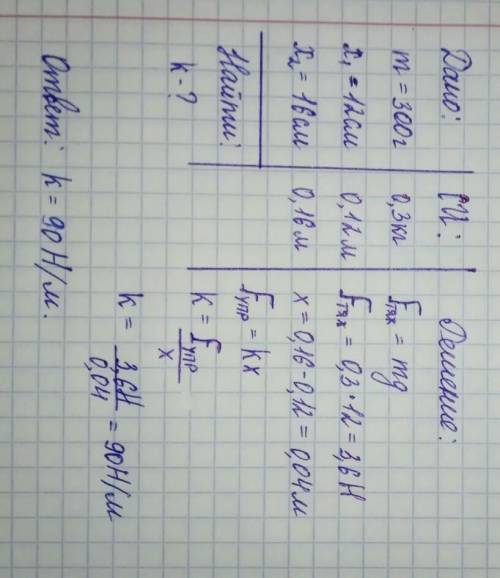 Дано:
m = 300г
x₁ = 12см
x₂ = 16см
Найти:
k - ?
СИ:
0,3кг
0,12м
0,16м
Решение:
Fтяж = mg
Fтяж = 0,3 · 12 = 3,6 Н
x = 0,16 - 0,12 = 0,04 м
Fупр = kx
k = Fупр / x
k = 3,6Н / 0,04 = 90Н/м
Ответ: k = 90 Н/м.